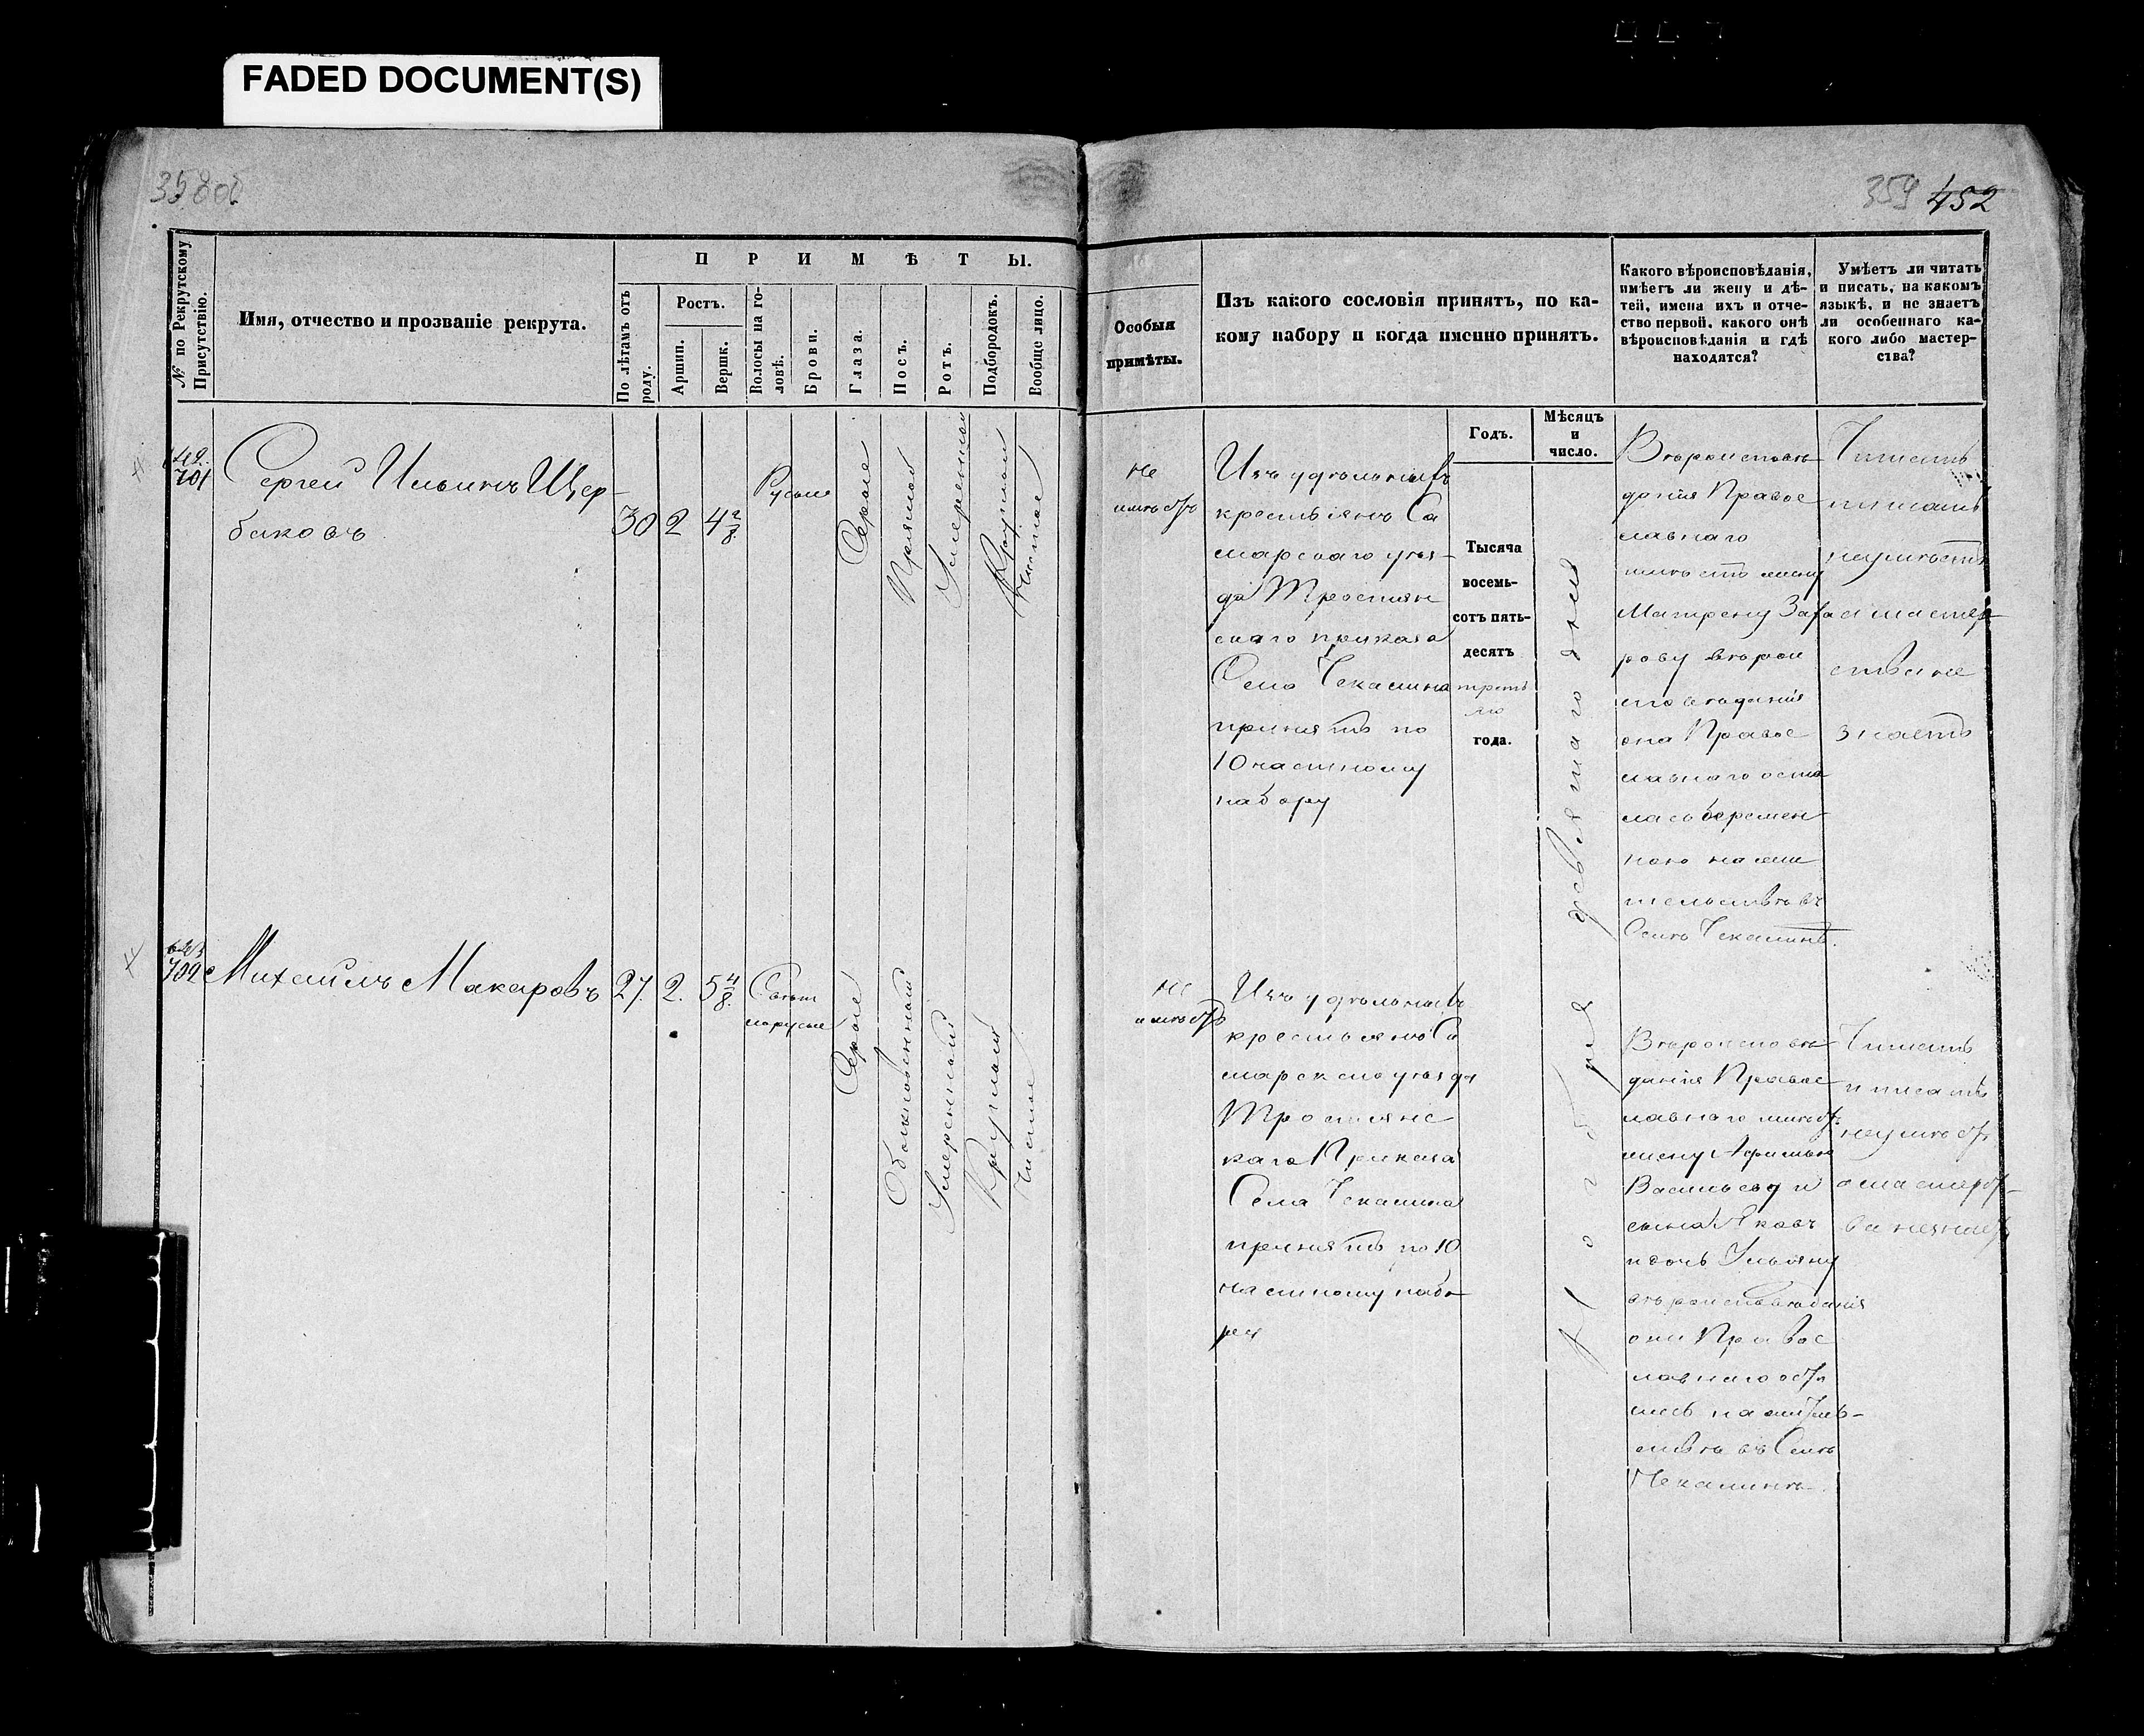 FADED DOCUMENT(S)
358об.
359 452
№ по Рекрутскому Присутствію.
Имя, отчество и прозваніе рекрута.
ПРИМѢТЫ.
По лѣтамъ отъ роду.
Ростъ.
Аршин.
Вершк.
Волосы на головѣ.
Брови.
Глаза.
Носъ.
Ротъ.
Подбородокъ.
Вообще лицо.
Особыя
примѣты.
Изъ какого сословія принятъ, по ка-
кому набору и когда имѣнно принятъ.
Какого вѣроисповѣданія,
имѣетъ ли жену и дѣ-
тей, имена ихъ и отче-
ство первой, какого онѣ
вѣроисповѣданія и гдѣ
находятся?
Умѣетъ ли читать
и писать, на какомъ
языкѣ, и не знаетъ
ли особеннаго ка-
кого либо мастер-
ства?
Годъ.
Мѣсяцъ
и
число.
701
Сергей Ильинъ Щер-
баковъ
30 2 4 2/8
Русые
Серые
Прямой
Умеренной
Круглой
Чистое
не
имѣетъ
Изъ удѣльныхъ
крестьянъ Са
марскаго уѣз-
да Тростян
скаго приказа
Села Чекалина
принятъ по
10 частному
набору
Тысяча
восемь-
сотъ пять-
десятъ
треть
яго
года.
девятаго дня
Ноября
Вѣроисповѣ-
данія Правос
лавнаго
имѣетъ жену
Матрену Заха
рову вѣрои
сповѣданія
она Правос
лавнаго оста
лась беремен
ною на жи
тельствѣ въ
Селѣ Чекалинѣ.
Читать
писать
неумѣетъ
а мастер-
ства не
знаетъ
702
Михаилъ Макаровъ
27. 2. 5 4/8.
Светл
порусые
Серые
Обыкновенной
Умеренной
Круглой
Чистое
не
имѣетъ
Изъ удѣльныхъ
крестьянъ Са
марскаго уѣзда
Тростянс
каго Приказа
Села Чекалина
принятъ по 10
частному набо-
ру
Вѣроисповѣ-
данія Правос
лавнаго имѣетъ
жену
Васильеву и
сына Яковъ
и дочь Ульяну
вѣроисповѣданія
они Правос
лавнаго оста
лись на житель-
ствѣ въ Селѣ
Чекалинѣ.
Читать
и писать
неумѣетъ
а мастерст-
ва незнаетъ